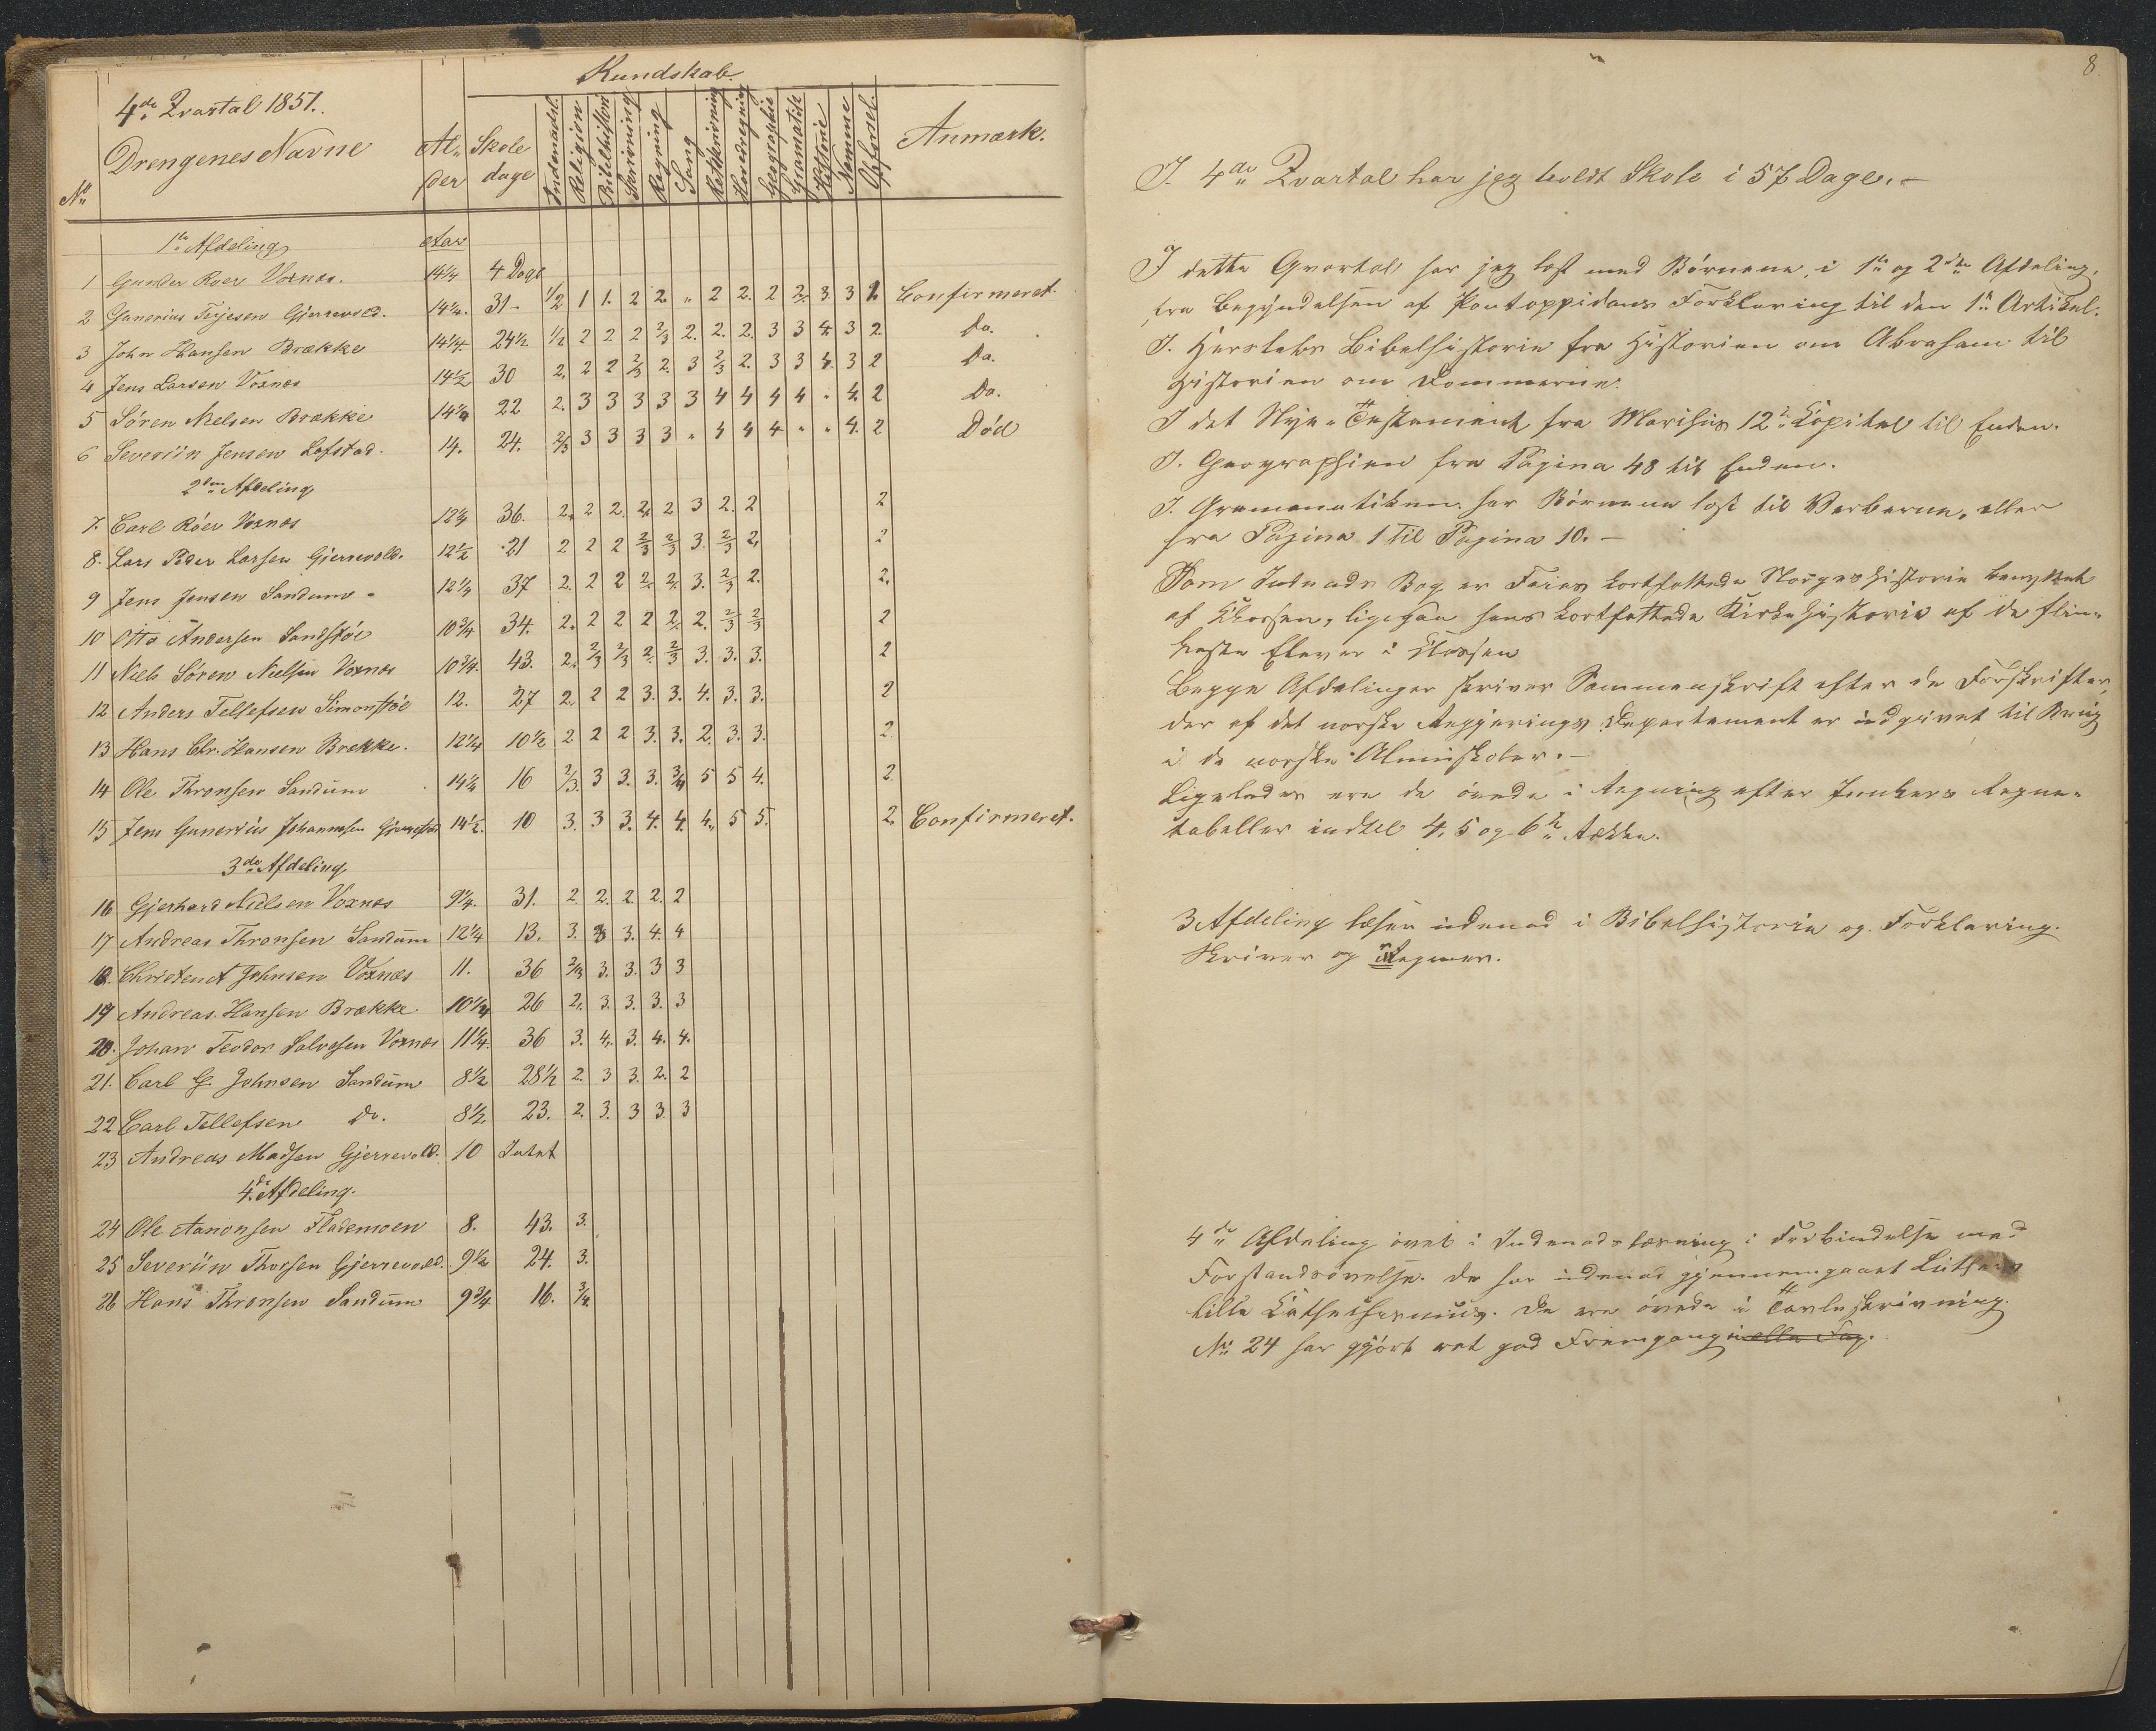 Kundskab.
4de Qvartal 1851.
No Drengenes Navne Al- der Skole dage Indenadsl. Religion Bibelhistori Skrivning Regning Sang Retskrivning Hovedregning Geographie Gramatik Historie Nemme Opførsel. Anmærk.
1ste Afdeling Aar
1 Gunder Roer Voxnæs. 14 1/4 4 Dage
2 Gunerius Terjesen Gjerrevold. 14 1/4. 31 - 1/2 1 1. 2 2. " 2 2. 2 2. 3 3 1. Confirmeret.
3 John Hansen Brække 14 1/4. 24 1/2 1/2 2 2 2 2/3 2. 2. 2. 3 3 4. 3 2. Do.
4 Jens Larsen Voxnæs 14 1/2 30 2. 2 2 2/3 2. 3 2/3 2. 3 3 4. 3 2 Do.
5 Sören Nielsen Brække 14 1/4 22 2. 3 3 3 3 3 4 4 4 4 " 4. 2 Do.
6 Severiin Jensen Lofstad. 14. 24. 2/3 3 3 3 3 " 4 4 4 " " 4. 2 Död
2den Afdeling
7. Carl Röer Voxnæs 12 1/4 36. 2. 2 2. 2. 2 3 2. 2 2
8. Lars Peder Larsen Gjerrevold. 12 1/2 21 2 2 2 2/3 2/3 3. 2/3 2. 2
9 Jens Jensen Sandum 12 1/4 37 2. 2 2 2. 2. 3. 2/3 2. 2.
10 Otto Andersen Sandstöe 10 3/4 34. 2. 2 2 2 2. 2. 2/3 2/3 2
11 Niels Sören Nielsen Voxnæs 10 3/4. 43. 2. 2/3 2/3 2. 2/3 3. 3. 3. 2
12 Anders Tellefsen Simonstöe 12. 27 2. 2 2 3. 3. 4. 3. 3. 2
13 Hans Chr. Hansen Brække. 12 1/4 10 1/2 2 2 2 3. 3. 2. 3. 3. 2.
14 Ole Thronsen Sandum 14 1/4 16 2/3. 3 3. 3. 3/4 5 5 4. 2.
15 Jens Gunerius Johannesen Gjerrestad 14 1/2. 10 3. 3 3. 4. 4. 4. 5 5. 2. Confirmeret.
3de Afdeling
16 Gjerhard Nielsen Voxnæs 9 1/4. 31. 2. 2. 2. 2. 2
17 Andreas Thronsen Sandum 12 1/4 13. 3. 3 3. 4. 4
18. Christen A Johnsen Voxnæs 11. 36 2/3 3. 3. 3 3
19 Andreas Hansen Brække 10 1/4 26 2. 3. 3. 3. 3
20. Johan Teodor Salvesen Voxnæs 11 1/4. 36 3. 4. 3. 4. 4.
21. Carl G. Johnsen Sandum 8 1/2 28 1/2 2. 3 3. 2. 2
22 Carl Tellefsen do. 8 1/2. 23. 2. 3. 3 3. 3
23 Andreas Madsen Gjerrevold. 10 Intet
4de Afdeling.
24 Ole Aanonsen Flademoen 8. 43. 3.
25 Severiin Thorsen Gjerrevold. 9 1/2 24. 3.
26 Hans Thronsen Sandum 9 3/4 16. 3/4.
8.
I. 4de Qvartal har jeg holdt Skole i 57 Dage. -
I dette Qvartal har jeg læst med Börnene i 1ste og 2den Afdeling,
fra Begyndelsen af Pontoppidans Forklaring til den 1ste Artikel.
I. Herslebs Bibelhistorie fra Historien om Abraham til
Historien om Dommerne.
I det Nye Testament fra Marchus 12te Kapitel til Enden.
I. Geographien fra Pagina 48 til Enden.
I. Grammatiken har Börnene læst til Verberne, eller
fra Pagina 1 til Pagina 10. -
Som Indenads Bog er Faies kortfattede Norgeshistorie benyttet
af Klassen, ligesaa hans kortfattede Kirkehistorie af de flin-
keste Elever i Klassen
Begge Afdelinger skriver Sammenskrift efter de Forskrifter,
der af det norske Regjerings Departement er udgivet til Brug
i de norske Almuskoler. -
Ligeledes ere de övede i Regning efter Junkers Regne-
tabeller indtil 4, 5 og 6te Række.
3 Afdeling læser udenad i Bibelhistorie og Forklaring.
Skriver og Regner.
4de Afdeling övet i Indenads-læsning i Forbindelse med
Forstandsövelse. De har udenad gjennemgaaet Luthers
lille Kathechismus. De ere övede i Tavleskrivning.
No 24 har gjort ret god Fremgang i alle Fag.